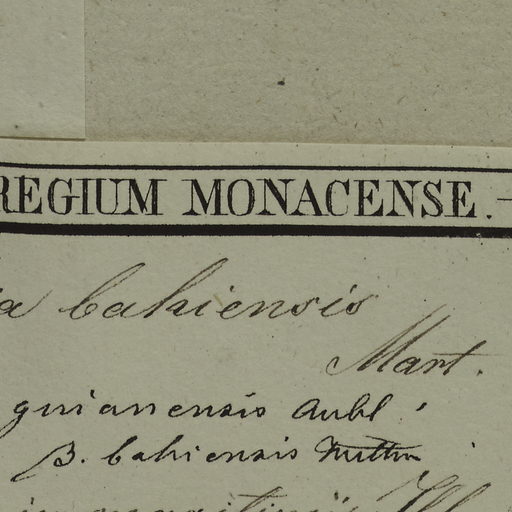 REGIUM MONACENSE.—
a bahiensis
Mart.
guianensis Aubl.
β. bahiensis